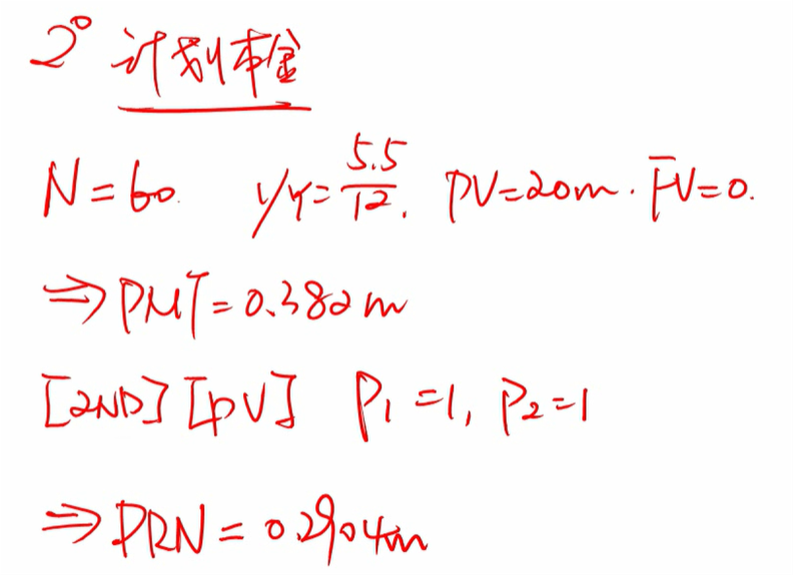 2° 计划本金
N=60. I/Y=5.5/12. PV=20m. FV=0.
⇒PMT=0.382m
[2ND] [PV] P₁=1, P₂=1
⇒PRN=0.2904m